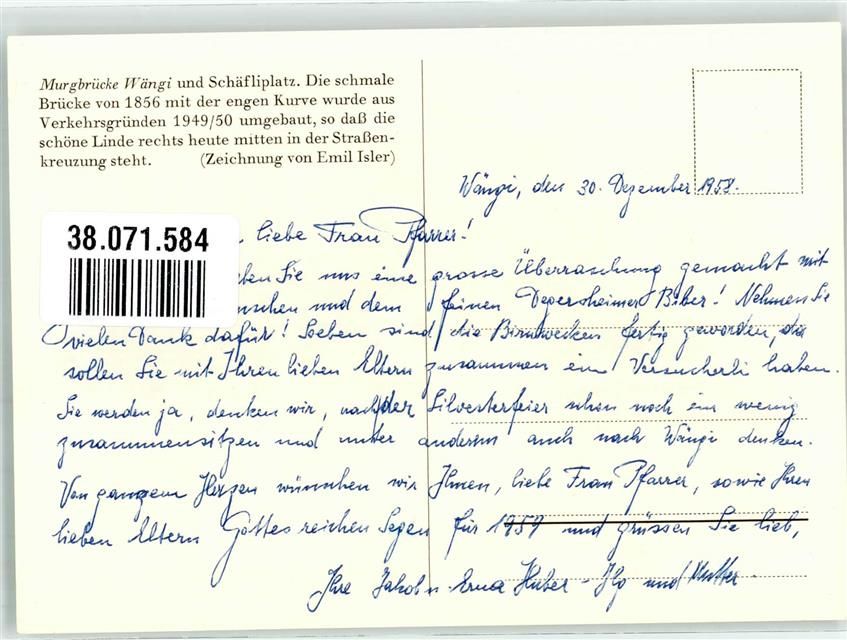 Murgbrücke Wängi und Schäfliplatz. Die schmale
Brücke von 1856 mit der engen Kurve wurde aus
Verkehrsgründen 1949/50 umgebaut, so daß die
schöne Linde rechts heute mitten in der Straßen-
kreuzung steht. (Zeichnung von Emil Isler)
Wängi, den 30. Dezember 1958.
38.071.584
liebe Frau Pfarrer!
ben Sie uns eine grosse Überraschung gemacht mit
nschen und dem feinen Degersheimer Biber! Nehmen Sie
vielen Dank dafür! Soeben sind die Birnwecken fertig geworden, da
sollen Sie mit Ihren lieben Eltern zusammen ein Versucherli haben.
Sie werden ja, denken wir, nach der Silvesterfeier schon noch ein wenig
zusammensitzen und unter anderem auch nach Wängi denken.
Von ganzem Herzen wünschen wir Ihnen, liebe Frau Pfarrer, sowie Ihren
lieben Eltern Gottes reichen Segen für 1959 und grüssen Sie lieb,
Ihre Jakob u. Erna Huber-Ilg und Mutter